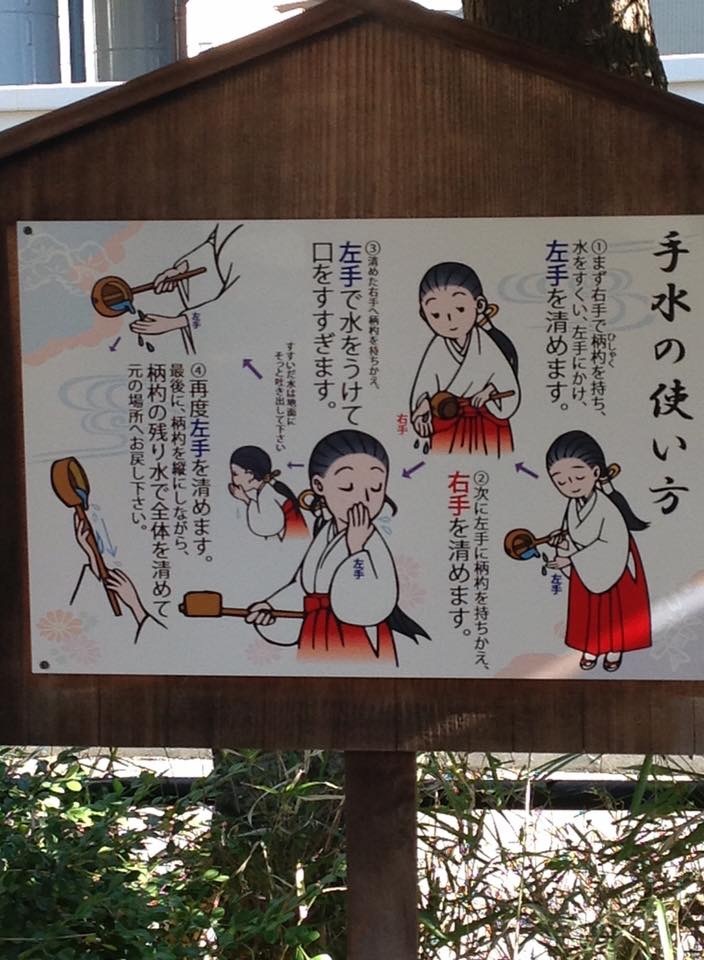 手水の使い方
①まず右手で柄杓を持ち、
ひしゃく
水をすくい、左手にかけ、
左手を清めます。
左手
②次に左手に柄杓を持ちかえ、
右手を清めます。
右手
③清めた右手へ柄杓を持ちかえ、
左手で水をうけて
口をすすぎます。
すすいだ水は地面に
そっと吐き出して下さい
左手
④再度左手を清めます。
最後に、柄杓を縦にしながら、
柄杓の残り水で全体を清めて
元の場所へお戻し下さい。
左手